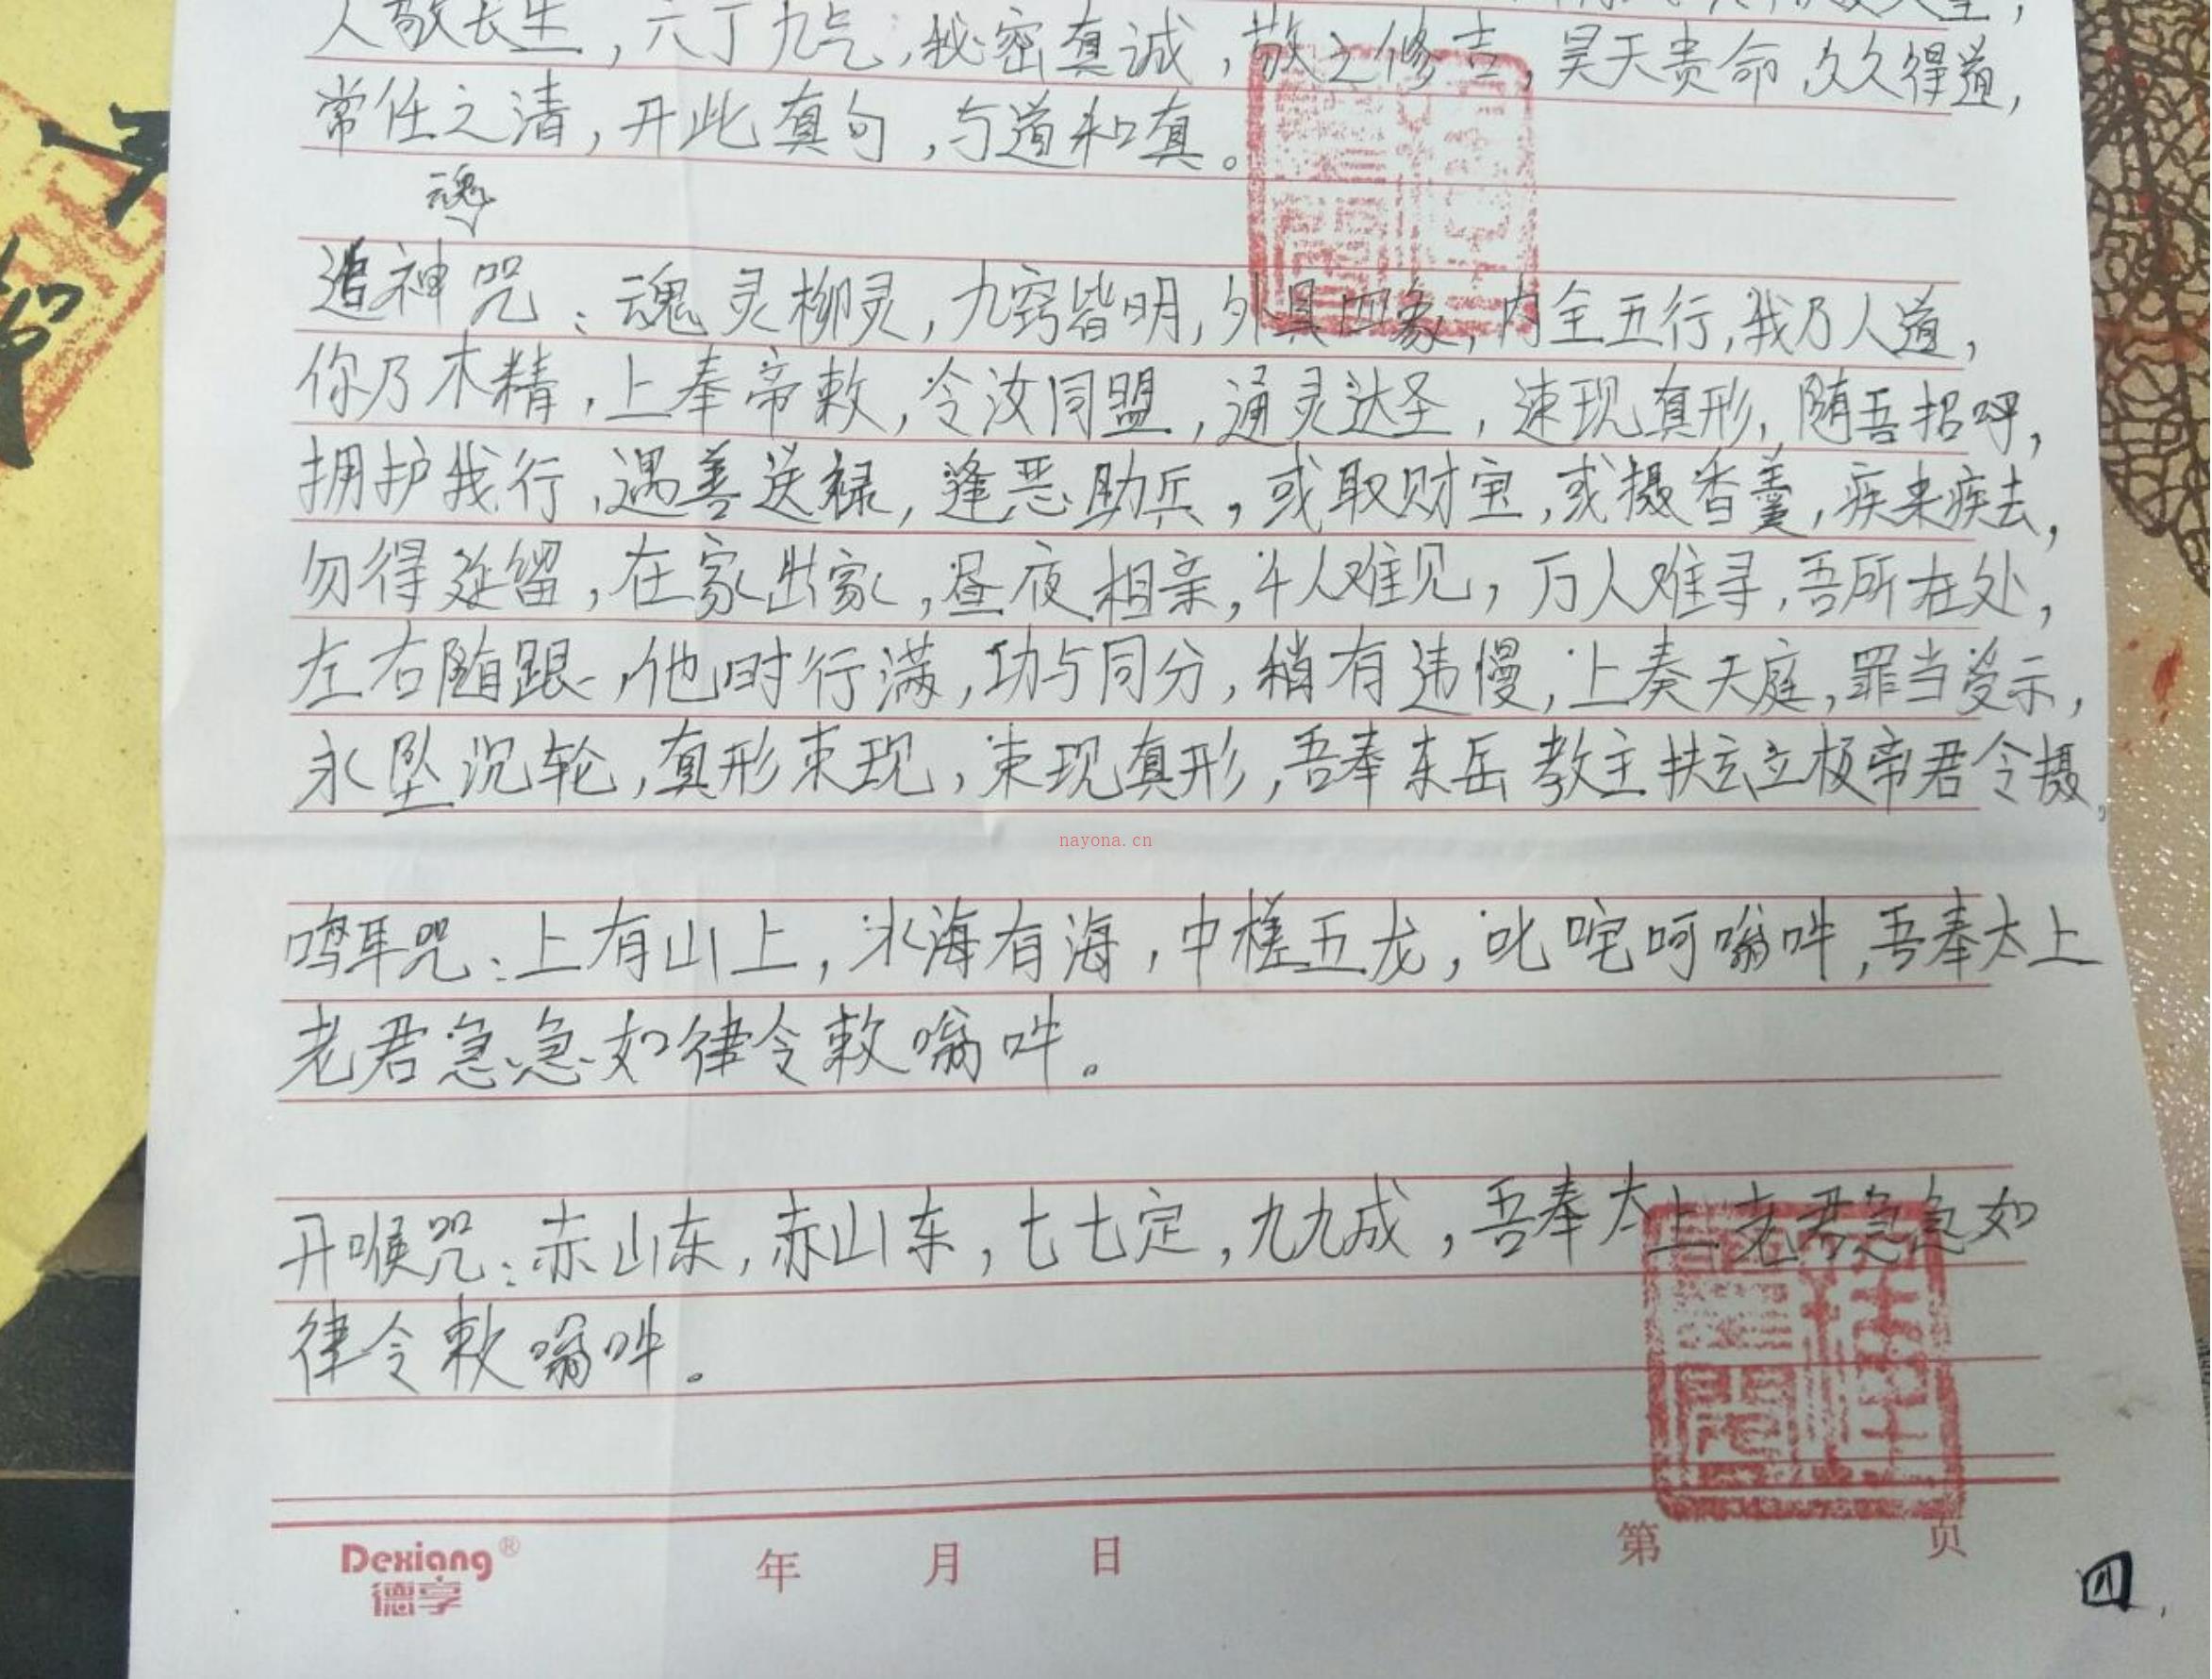 人敬长生，六丁九气，秘密真诚，敬之修吉，昊天贵命，久久得道，
常任之清，开此真句，与道和真。
魂
追神咒：魂灵柳灵，九窍皆明，外具四象，内全五行，我乃人道，
你乃木精，上奉帝敕，令汝同盟，通灵达圣，速现真形，随吾招呼，
拥护我行，遇善送禄，逢恶助兵，或取财宝，或摄香羹，疾来疾去，
勿得延留，在家出家，昼夜相亲，斗人难见，万人难寻，吾所在处，
左右随跟，他时行满，功与同分，稍有违慢，上奏天庭，罪当受示，
永坠沉轮，真形束现，束现真形，吾奉东岳教主扶玄立极帝君令摄。
nayona.cn
鸣耳咒：上有山上，水海有海，中槎五龙，叱咤呵嗡吽，吾奉太上
老君急急如律令敕嗡吽。
开喉咒：赤山东，赤山东，七七定，九九成，吾奉太上老君急急如
律令敕嗡吽。
Dexiang®
德享
年 月 日 第 页
四